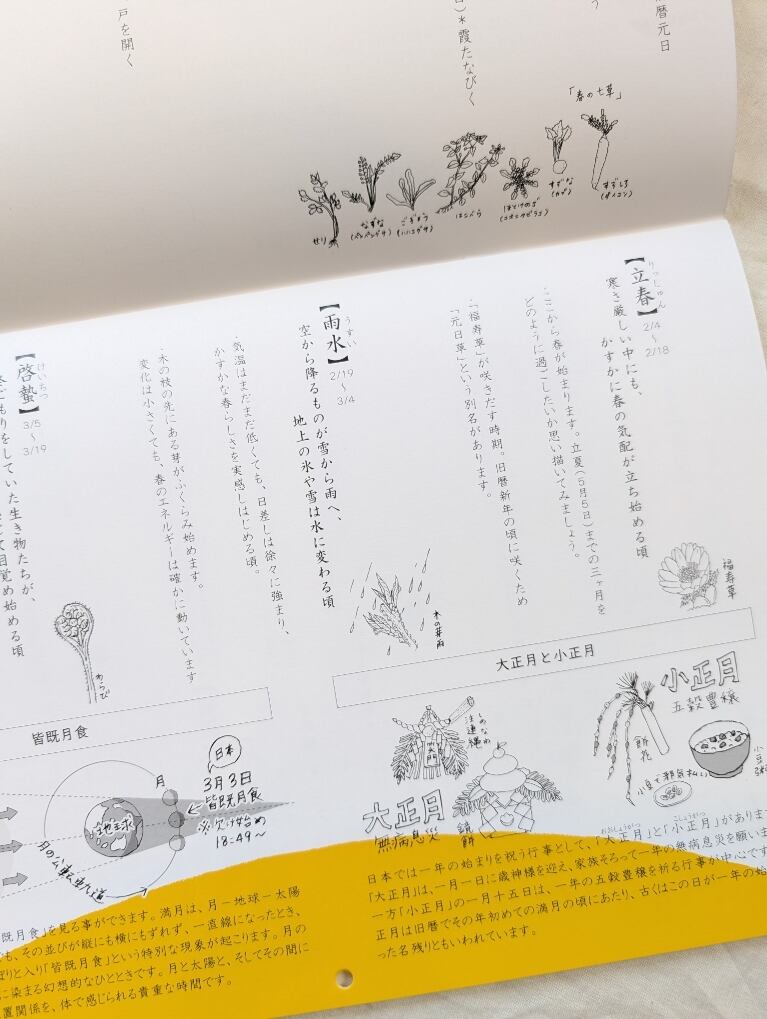 暦元日
う
)＊霞たなびく
戸を開く
「春の七草」
すずしろ
(ダイコン)
すずな
(カブ)
ほとけのざ
(コオニタビラコ)
はこべら
ごぎょう
(ハハコグサ)
なずな
(ペンペングサ)
せり
【立春】
りっしゅん
2/4
〜
2/18
寒さ厳しい中にも、
かすかに春の気配が立ち始める頃
・ここから春が始まります。立夏(5月5日)までの三ヶ月を
どのように過ごしたいか思い描いてみましょう。
・「福寿草」が咲きだす時期。旧暦新年の頃に咲くため
「元日草」という別名があります。
福寿草
【雨水】
うすい
2/19
〜
3/4
空から降るものが雪から雨へ、
地上の氷や雪は水に変わる頃
・気温はまだまだ低くても、日差しは徐々に強まり、
かすかな春らしさを実感しはじめる頃。
・木の枝の先にある芽がふくらみ始めます。
変化は小さくても、春のエネルギーは確かに動いています
木の芽雨
【啓蟄】
けいちつ
3/5
〜
3/19
もりをしていた生き物たちが、
目覚め始める頃
わらび
大正月と小正月
小正月
五穀豊穣
餅花
小豆で邪気払い
小豆粥
しめなわ
注連縄
大正月
無病息災
鏡餅
日本では一年の始まりを祝う行事として、「大正月」と「小正月」があります
おおしょうがつ
こしょうがつ
「大正月」は、一月一日に歳神様を迎え、家族そろって一年の無病息災を願いま
一方「小正月」の一月十五日は、一年の五穀豊穣を祈る行事が中心です
正月は旧暦でその年初めての満月の頃にあたり、古くはこの日が一年の始
った名残りともいわれています。
皆既月食
日本
3月3日
皆既月食
※欠け始め
18:49〜
月
地球
月の公転軌道
既月食」を見る事ができます。満月は、月－地球－太陽
も、その並びが縦にも横にもずれず、一直線になったとき、
ぽりと入り「皆既月食」という特別な現象が起こります。月の
に染まる幻想的なひとときです。月と太陽と、そしてその間に
置関係を、体で感じられる貴重な時間です。